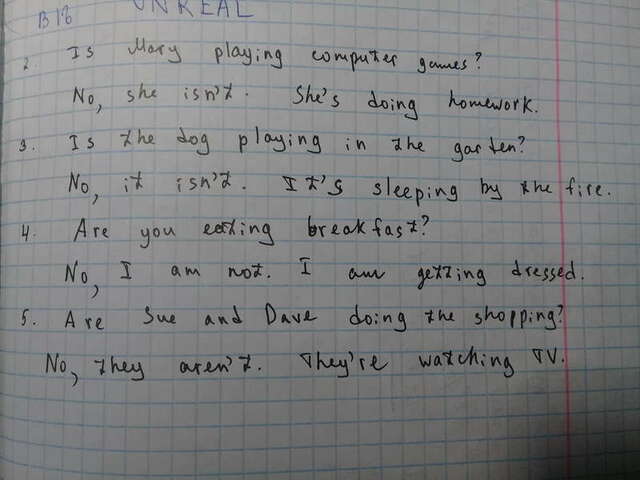 UNREAL
B1b
2 Is Mary playing computer games?
No, she isn't. She's doing homework.
3. Is the dog playing in the garten?
No, it isn't. It's sleeping by the fire.
4. Are you eating breakfast?
No, I am not. I am getting dressed.
5. Are Sue and Dave doing the shopping?
No, they aren't. They're watching TV.